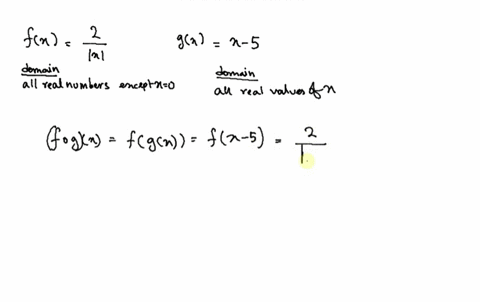 f(x) = 2/|x|    g(x) = x-5
domain    domain
all real numbers except x=0    all real values of x
(fog)(x) = f(g(x)) = f(x-5) = 2/|